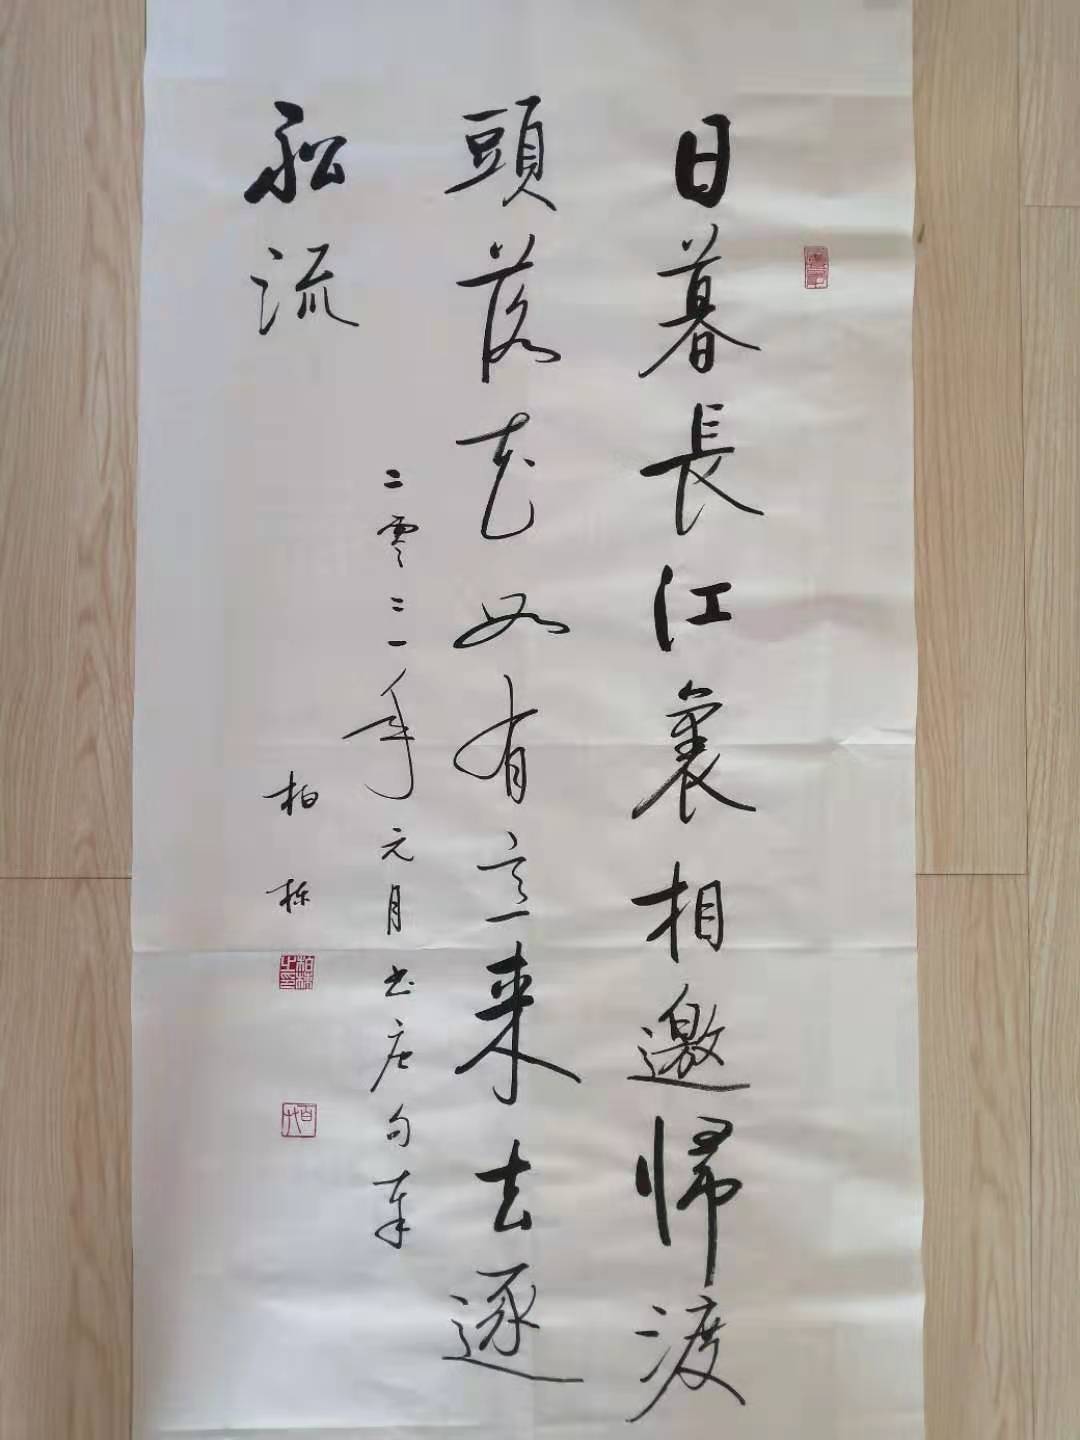 日暮長江裏相邀歸渡
頭落花如有意來去逐
船流
二零二一年元月书唐句
柏栋